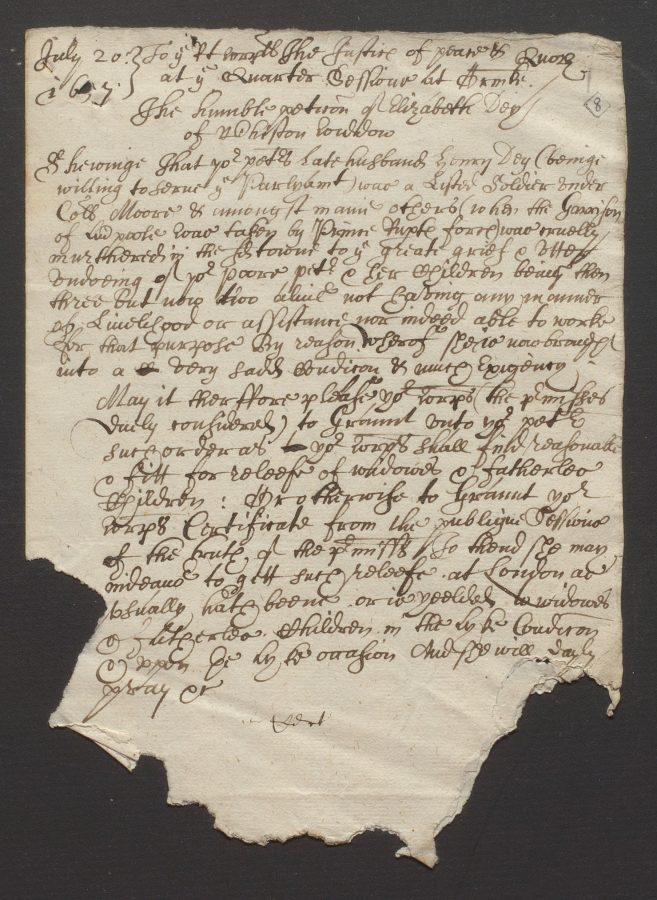 July 20:} To ye Rt worpll The Justices of peace & Quor
1657} at ye Quarter Sessions at Ormsk:
The humble peticion of Elizabeth Dey
of widdow
8
Shewinge That yor petrs Late husband Henry Dey (beinge
willing to serve ye Parlyamt) was a Listed Soldier under
Coll Moore & amongst manie others (when the Garrison
of Liverpoole was taken by Prince Rupts forces) was cruelly
murthered in the sd towne to ye greate grief & Utter
Undoeing of yor poore petr & her Children being then
three but now two alive not haveing any manner
of Livelihood or assistance nor indeed able to worke
for that purpose By reason wherof shee is now brought
into a very sadd Condicon & much Exigency
May it therfore please yor worps (the prmisses
duely considered) to Graunt unto yor petr
such order as yor worps shall find reasonable
& fitt for releefe of widowes & fatherles
Children: Or otherwise to Graunt yor
worps Certificate from the publique Sessions
of the truth of the prmisses To thend shee may
indeavor to gett such releefe at London as
Usually hath beene or is yeelded to widowes
& fatherles Children in the Lyke Condicon
& uppon ye Lyke occasion And shee will dayly
pray &c